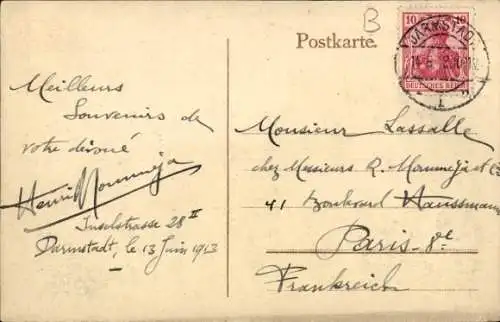 B
Postkarte.
10 10
DEUTSCHES REICH
DARMSTADT
Meilleurs
Souvenirs de
votre dévoué
Henri Mommeja
Inselstrasse 28 II
Darmstadt, le 13 Juin 1913
Monsieur Lassalle
chez Messieurs R. Mommeja et Cie
41 Boulevard Haussmann
Paris - 8e.
Frankreich